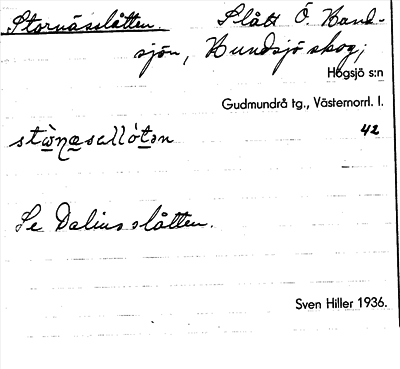 Stornässlåtten. Slått Ö. Band-
sjön, Bundsjö skog;
Högsjö s:n
Gudmundrå tg., Västernorrl. l.
42
Se Daliusslåtten.
Sven Hiller 1936.